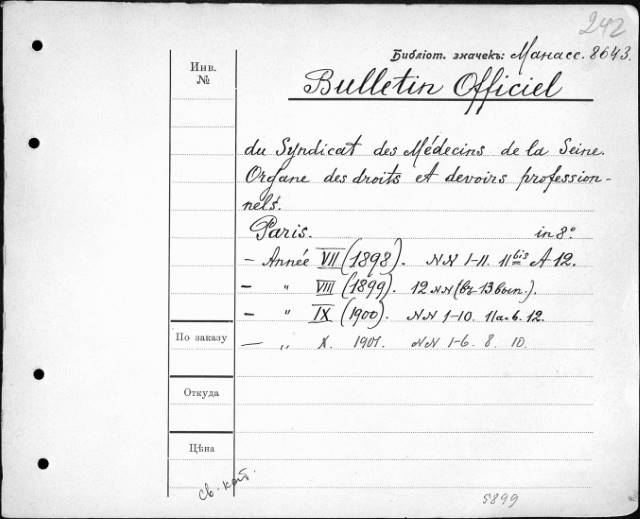 242
Библіот. значекъ: Манасс. 8643.
Инв.
№
Bulletin Officiel
du Syndicat des Médecins de la Seine.
Organe des droits et devoirs profession-
nels.
Paris. in 8°
- Année VII (1898). NN 1-11. 11bis A 12.
- " VIII (1899). 12 NN (въ 13 вып.).
- " IX (1900). NN 1-10. 11a-б. 12.
По заказу
— " X. 1901. NN 1-6. 8. 10.
Откуда
Цѣна
св. кат.
5899